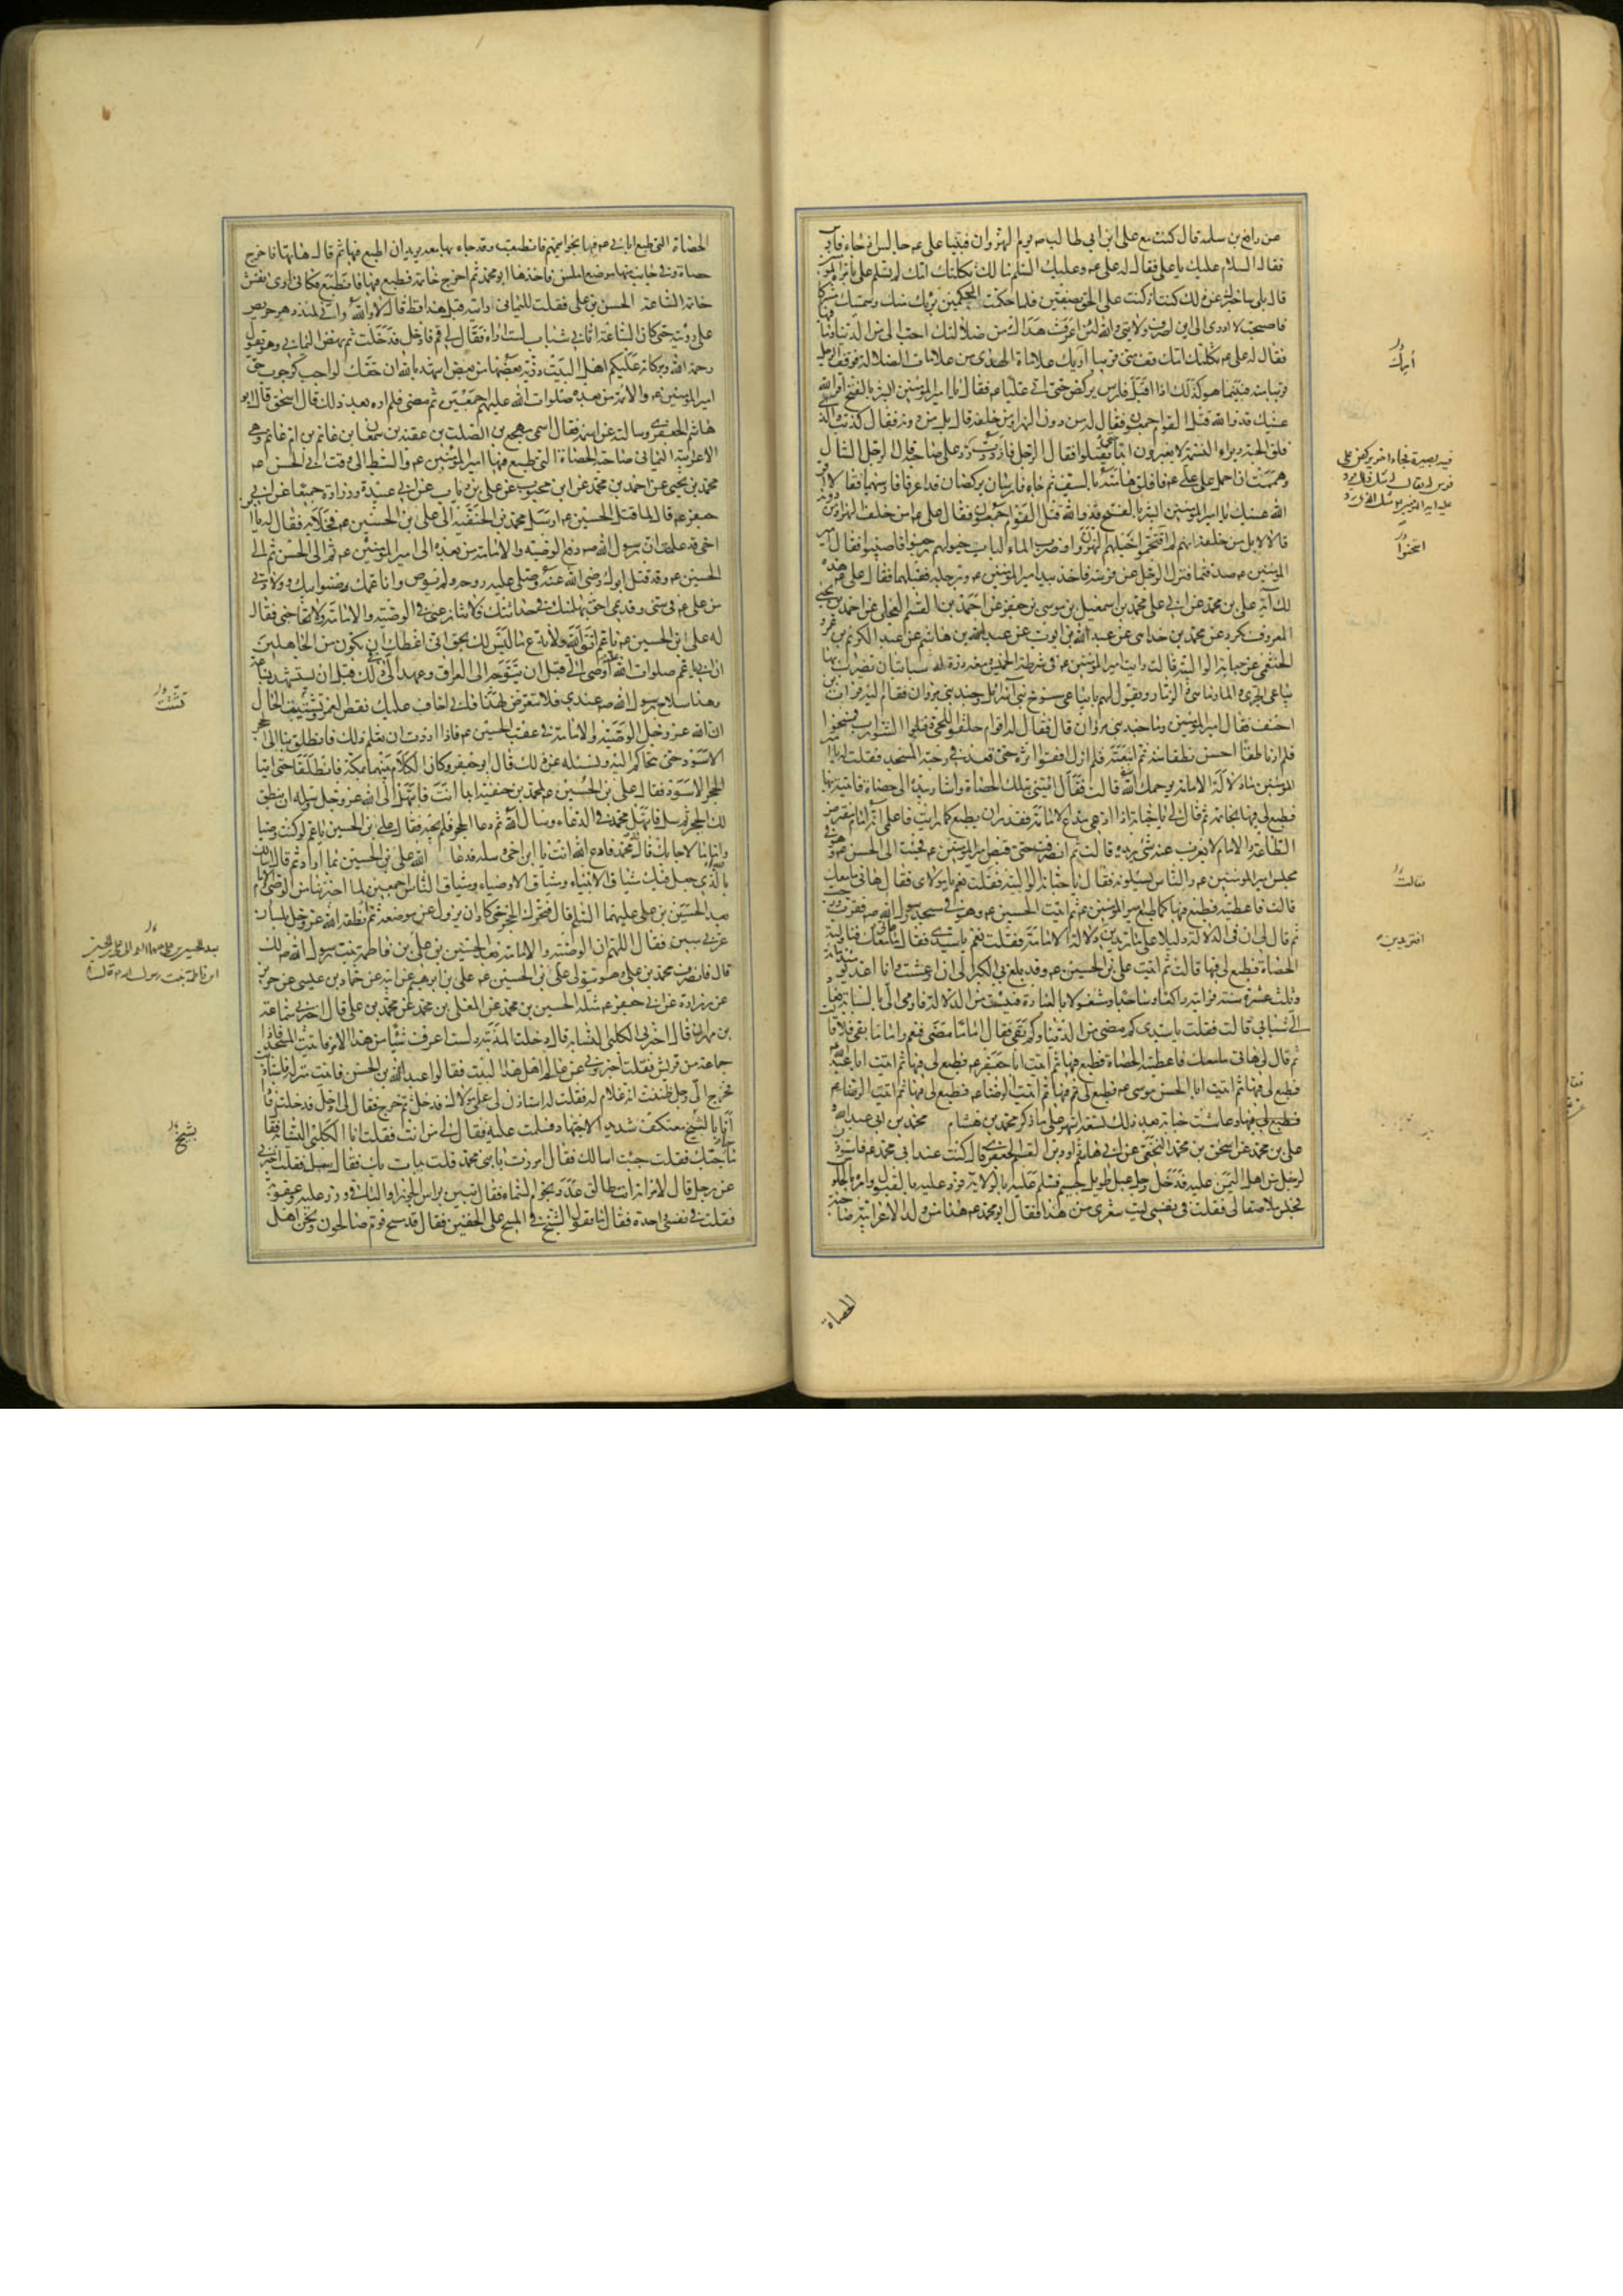 عن رافع بن سلمة قال كنت مع علي ابن ابي طالب ص يوم النهروان فبينا علي عم جالس اذ جاء فارس
فقال السلام عليك يا علي فقال له علي عم وعليك السلم مالك ثكلتك امك لم تسلم علي بامرة المؤمنين
قال بلى ساخبرك عن ذلك كنت اذ كنت على الحق بصفين فلما حكمت الحكمين برئت منك وسميتك مشركا
فاصبحت لا ادري الى اين اصرف ولايتي والله لئن اعرف هداك من ضلالتك احب الي من الدنيا وما فيها
فقال له علي عم ثكلتك امك قف مني قريبا اريك علامات الهدى من علامات الضلالة فوقف الرجل
قريبا منه فبينما هو كذلك اذا اقبل فارس يركض حتى اتى عليا عم فقال يا امير المؤمنين ابشر بالفتح اقر الله
عينيك قد والله قتل القوم اجمعون فقال له من دون النهر او من خلفه قال بل من دونه فقال كذبت والذي
فلق الحبة وبرا النسمة لا يعبرون ابدا حتى يقتلوا فقال الرجل فازددت
وهممت ان احمل على علي عم فافلق هامته بالسيف ثم جاء فارسان يركضان قد اعرقا فرسيهما فقالا اقر
الله عينيك يا امير المؤمنين ابشر بالفتح قد والله قتل القوم اجمعون فقال علي عم امن خلف النهر او من دونه
قالا لا بل من خلفه انهم لما اقتحموا خيلهم النهروان وضرب الماء لبات خيولهم رجعوا فاصيبوا فقال امير
المؤمنين عم صدقتما فنزل الرجل عن فرسه فاخذ بيد امير المؤمنين عم وبرجله فقبلهما فقال علي عم هذه
لك آية علي بن محمد عن ابي علي محمد بن اسمعيل بن موسى بن جعفر عن احمد بن القسم العجلي عن احمد بن يحيى
المعروف بكرد عن محمد بن خداهي عن عبد الله بن ايوب عن عبد الله بن هاشم عن عبد الكريم بن عمرو
الخثعمي عن حبابة الوالبية قالت رايت امير المؤمنين عم في شرطة الخميس ومعه درة لها سبابتان يضرب بها
بياعي الجري والمارماهي والزمار ويقول لهم يا بياعي مسوخ بني اسرائيل وجند بني مروان فقام اليه فرات بن
احنف فقال يا امير المؤمنين وما جند بني مروان قال فقال له اقوام حلقوا اللحى وفتلوا الشوارب فمسخوا
فلم ار ناطقا احسن نطقا منه ثم اتبعته فلم ازل اقفوا اثره حتى قعد في رحبة المسجد فقلت له يا امير
المؤمنين ما دلالة الامامة يرحمك الله قالت فقال ائتيني بتلك الحصاة واشار بيده الى حصاة فاتيته بها
فطبع لي فيها بخاتمه ثم قال لي يا حبابة اذا ادعى مدع الامامة فقدر ان يطبع كما رايت فاعلمي انه امام مفترض
الطاعة والامام لا يعزب عنه شيء يريده قالت ثم انصرفت حتى قبض امير المؤمنين عم فجئت الى الحسن عم وهو في
مجلس امير المؤمنين عم والناس يسئلونه فقال يا حبابة الوالبية فقلت نعم يا مولاي فقال هاتي ما معك
قالت فاعطيته فطبع فيها كما طبع امير المؤمنين عم ثم اتيت الحسين عم وهو في مسجد رسول الله ص فقرب ورحب
ثم قال لي ان في الدلالة دليلا على ما تريدين دلالة الامامة فقلت نعم يا سيدي فقال هاتي ما معك فناولته
الحصاة فطبع لي فيها قالت ثم اتيت علي بن الحسين عم وقد بلغ بي الكبر الى ان ارعشت وانا اعد يومئذ مائة
وثلث عشرة سنة فرايته راكعا وساجدا ومشغولا بالعبادة فيئست من الدلالة فاومى الي بالسبابة فعاد
الي شبابي قالت فقلت يا سيدي كم مضى من الدنيا وكم بقي فقال اما ما مضى فنعم واما ما بقي فلا قال
ثم قال لي هاتي ما معك فاعطيته الحصاة فطبع فيها ثم اتيت ابا جعفر عم فطبع لي فيها ثم اتيت ابا عبد الله
فطبع لي فيها ثم اتيت ابا الحسن موسى عم فطبع لي فيها ثم اتيت الرضا عم فطبع لي فيها
فطبع لي فيها وعاشت حبابة بعد ذلك تسعة اشهر على ما ذكر محمد بن هشام محمد بن ابي عبد الله
علي بن محمد عن اسحق بن محمد النخعي عن ابي هاشم داود بن القسم الجعفري قال كنت عند ابي محمد عم فاستؤذن
لرجل من اهل اليمن عليه فدخل رجل عبل طويل جسيم فسلم عليه بالولاية فرد عليه بالقبول وامره بالجلوس
فجلس ملاصقا لي فقلت في نفسي ليت شعري من هذا فقال ابو محمد عم هذا من ولد الاعرابية صاحبة
الحصاة
أريك
فيه بصيرة فجاء اخر يركض على
فرس له فقال له مثل ذلك فرد
عليه امير المؤمنين مثل الذي رد
اقتحموا
فقالت
افتريدين
الحصاة التي طبع ابائي عم فيها بخواتيمهم فانطبعت وقد جاء بها معه يريد ان اطبع فيها ثم قال هاتها فاخرج
حصاة وفي جانب منها موضع املس فاخذها ابو محمد ثم اخرج خاتمه فطبع فيها فانطبع فكاني ارى نقش
خاتمه الساعة الحسن بن علي فقلت لليماني رايته قبل هذا قط قال لا والله واني لمنذ دهر حريص
على رؤيته حتى كان الساعة اتاني شاب لست اراه فقال لي قم فادخل فدخلت ثم نهض اليماني وهو يقول
رحمة الله وبركاته عليكم اهل البيت ذرية بعضها من بعض اشهد بالله ان حقك لواجب كوجوب حق
امير المؤمنين عم والائمة من بعده صلوات الله عليهم اجمعين ثم مضى فلم اره بعد ذلك قال اسحق قال ابو
هاشم الجعفري وسالته عن اسمه فقال اسمي مهجع بن الصلت بن عقبة بن سمعان بن غانم بن ام غانم وهي
الاعرابية اليمانية صاحبة الحصاة التي طبع فيها امير المؤمنين عم والسبط الى وقت ابي الحسن عم
محمد بن يحيى عن احمد بن محمد عن ابن محبوب عن علي بن رياب عن ابي عبيدة وزرارة جميعا عن ابي
جعفر عم قال لما قتل الحسين عم ارسل محمد بن الحنفية الى علي بن الحسين عم فخلا به فقال له يا ابن
اخي قد علمت ان رسول الله ص دفع الوصية والامامة من بعده الى امير المؤمنين عم ثم الى الحسن ثم الى
الحسين عم وقد قتل ابوك رضي الله عنه وصلى على روحه ولم يوص وانا عمك وصنو ابيك وولادتي
من علي عم في سني وقديمي احق بها منك في حداثتك فلا تنازعني في الوصية والامامة ولا تحاجني فقال
له علي ابن الحسين عم يا عم اتق الله ولا تدع ما ليس لك بحق اني اعظك ان تكون من الجاهلين
ان ابي يا عم صلوات الله عليه اوصى الي قبل ان يتوجه الى العراق وعهد الي في ذلك قبل ان يستشهد بساعة
وهذا سلاح رسول الله ص عندي فلا تتعرض لهذا فاني اخاف عليك نقص العمر وتشتت الحال
ان الله عز وجل جعل الوصية والامامة في عقب الحسين عم فاذا اردت ان تعلم ذلك فانطلق بنا الى الحجر
الاسود حتى نتحاكم اليه ونسئله عن ذلك قال ابو جعفر وكان الكلام بينهما بمكة فانطلقا حتى اتيا
الحجر الاسود فقال علي بن الحسين عم لمحمد بن حنفية ابدا انت فابتهل الى الله عز وجل وسله ان ينطق
لك الحجر ثم سل فابتهل محمد في الدعاء وسال الله ثم دعا الحجر فلم يجبه فقال علي بن الحسين يا عم لو كنت وصيا
واماما لاجابك قال له محمد فادع الله انت يا ابن اخي وسله فدعا الله علي بن الحسين بما اراد ثم قال اسالك
بالذي جعل فيك ميثاق الانبياء وميثاق الاوصياء وميثاق الناس اجمعين لما اخبرتنا من الوصي والامام
بعد الحسين بن علي عليهما السلم قال فتحرك الحجر حتى كاد ان يزول عن موضعه ثم انطقه الله عز وجل بلسان
عربي مبين فقال اللهم ان الوصية والامامة بعد الحسين بن علي بن فاطمة بنت رسول الله ص لك
قال فانصرف محمد بن علي وهو يتولى علي بن الحسين عم علي بن ابرهيم عن ابيه عن حماد بن عيسى عن حريز
عن زرارة عن ابي جعفر عم مثله الحسين بن محمد عن المعلى بن محمد عن محمد بن علي قال اخبرني سماعة
بن مهران قال اخبرني الكلبي النسابة قال دخلت المدينة ولست اعرف شيئا من هذا الامر فاتيت المسجد فاذا
جماعة من قريش فقلت اخبروني عن عالم اهل هذا البيت فقالوا عبد الله بن الحسن فاتيت منزله فاستاذنت
فخرج الي رجل ظننت انه غلام له فقلت له استاذن لي على مولاك فدخل ثم خرج فقال لي ادخل فدخلت فاذا
انا بالشيخ معتكف شديد الاجتهاد فسلمت عليه فقال لي من انت فقلت انا الكلبي النسابة فقال
ما حاجتك فقلت جئت اسالك فقال امررت بابني محمد قلت بدات بك فقال سل فقلت اخبرني
عن رجل قال لامراته انت طالق عدد نجوم السماء فقال تبين براس الجوزاء والباقي وزر عليه وعقوبة
فقلت في نفسي واحدة فقال ما يقول الشيخ في المسح على الخفين فقال قد مسح قوم صالحون ونحن اهل
تشتت
بعد الحسين بن علي عليهما السلم الى علي بن الحسين
ابن فاطمة بنت رسول الله ص قال
بشيخ